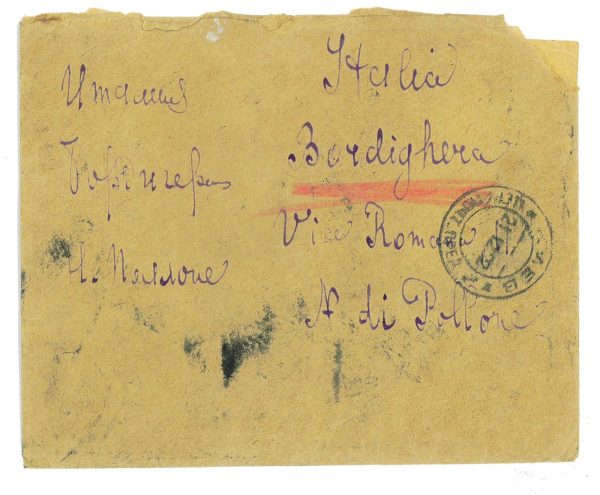 Италия
Бордигера
Н. Поллоне
Italia
Bordighera
Via Romana
N di Pollone
КИЕВ